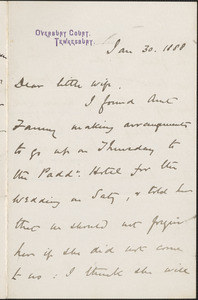 OVERBURY COURT,
TEWKESBURY.
Jan 30. 1888
Dear little wife.
I found Aunt
Fanny making arrangements
to go up on Thursday to
the Padd. Hotel for the
wedding on Saty, & told her
that we should not forgive
her if she did not come
to us: I think she will